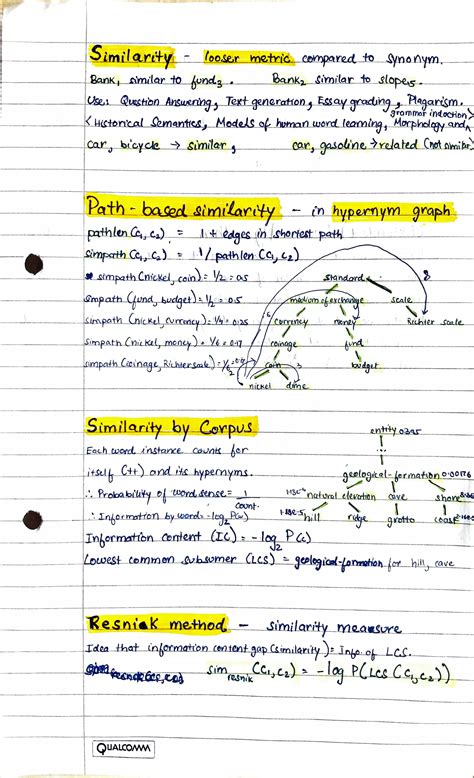 Similarity - looser metric compared to synonym.
Bank₁ similar to fund₃. Bank₂ similar to slope₅.
Use: Question Answering, Text generation, Essay grading, Plagarism.
grammar induction>
<Historical Semantics, Models of human word learning, Morphology and
car, bicycle → similar, car, gasoline → related (not similar)
Path-based similarity - in hypernym graph
pathlen (c₁, c₂) = 1 + edges in shortest path
simpath (c₁, c₂) = 1/pathlen (c₁, c₂)
simpath (nickel, coin) = 1/2 = 0.5
simpath (fund, budget) = 1/2 = 0.5
simpath (nickel, currency) = 1/4 = 0.25
simpath (nickel, money) = 1/6 = 0.17
simpath (coinage, Richter scale) = 1/6
standard
8
medium of exchange scale
6
currency money Richter scale
coinage fund
coin 3 budget
2
nickel dime
Similarity by Corpus
Each word instance counts for
itself (++) and its hypernyms.
∴ Probability of word sense = 1/count.
∴ Information by word = -log₂ P(w)
Information content (IC) = -log₂ P(c)
Lowest common subsumer (LCS) = geological-formation for hill, cave
entity 0.395
geological-formation 0.00176
natural elevation cave shore
hill ridge grotto coast
Resnick method - similarity measure
Idea that information content gap (similarity) = Info. of LCS.
sim resnik (c₁, c₂) = -log P(LCS (c₁, c₂))
QUALCOMM